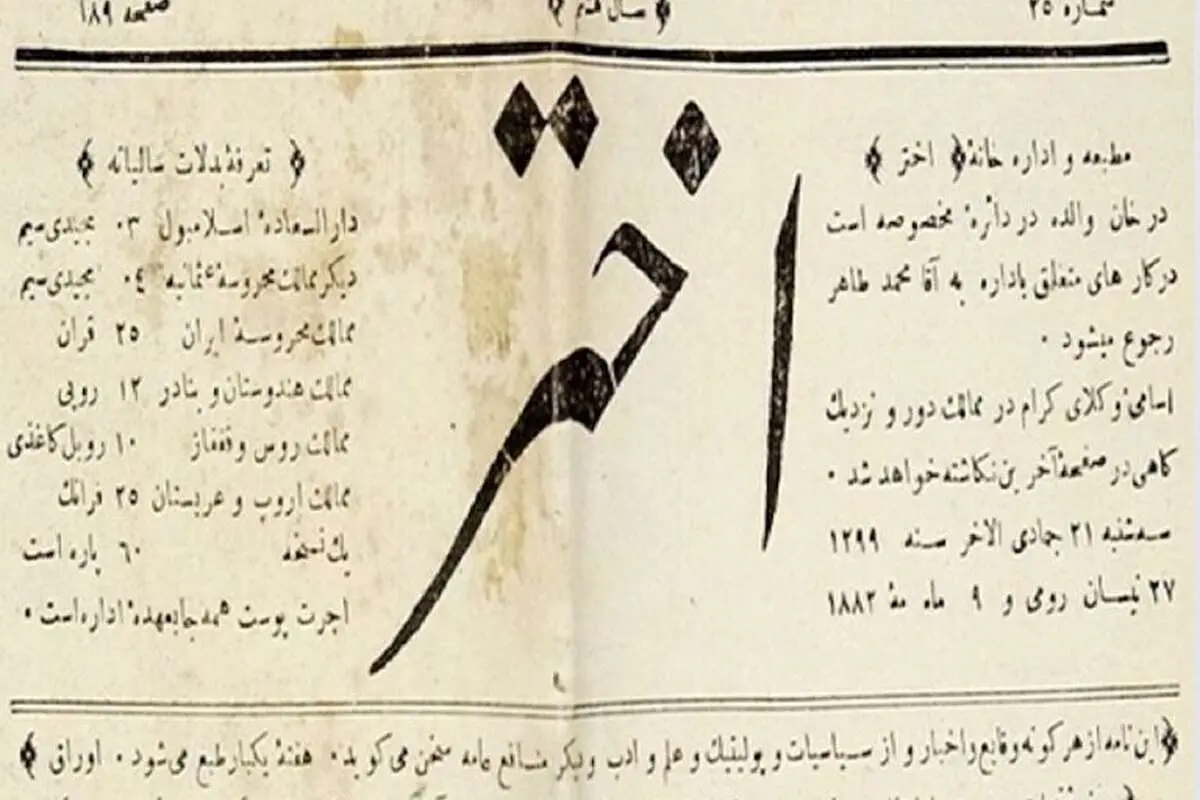 شماره ۲۵ ﴿ سال هشتم ﴾ صفحه ۱۸۹
اختر
مطبعه و اداره خانهٔ ﴿ اختر ﴾
در خان والده در دائرهٔ مخصوصه است
درکار های متعلق باداره به آقا محمد طاهر
رجوع میشود ۰
اسامی وکلای کرام در ممالک دور و نزدیک
کاهی در صفحهٔ آخرین نکاشته خواهد شد ۰
سه‌شنبه ۲۱ جمادی الاخر سنه ۱۲۹۹
۲۷ نیسان رومی و ۹ ماه مهٔ ۱۸۸۲
﴿ تعرفهٔ بدلات سالیانه ﴾
دارالسعادهٔ اسلامبول ۰۳ مجیدی سیم
دیکر ممالک محروسهٔ عثمانیه ۰٤ مجیدی سیم
ممالک محروسهٔ ایران ۲۵ قران
ممالک هندوستان و بنادر ۱۲ روپی
ممالک روس و قفقاز ۱۰ روبل کاغذی
ممالک اروپ و عربستان ۲۵ فرانک
یک نسخه ۶۰ پاره است
اجرت پوست همه جا بعهدهٔ اداره است ۰
﴿ این نامه از هر کونه وقایع و اخبار و از سیاسیات و پولیتیک و علم و ادب و دیکر منافع عامه سخن می کوید ۰ هفتهٔ یکبار طبع می شود ۰ اوراق ﴾